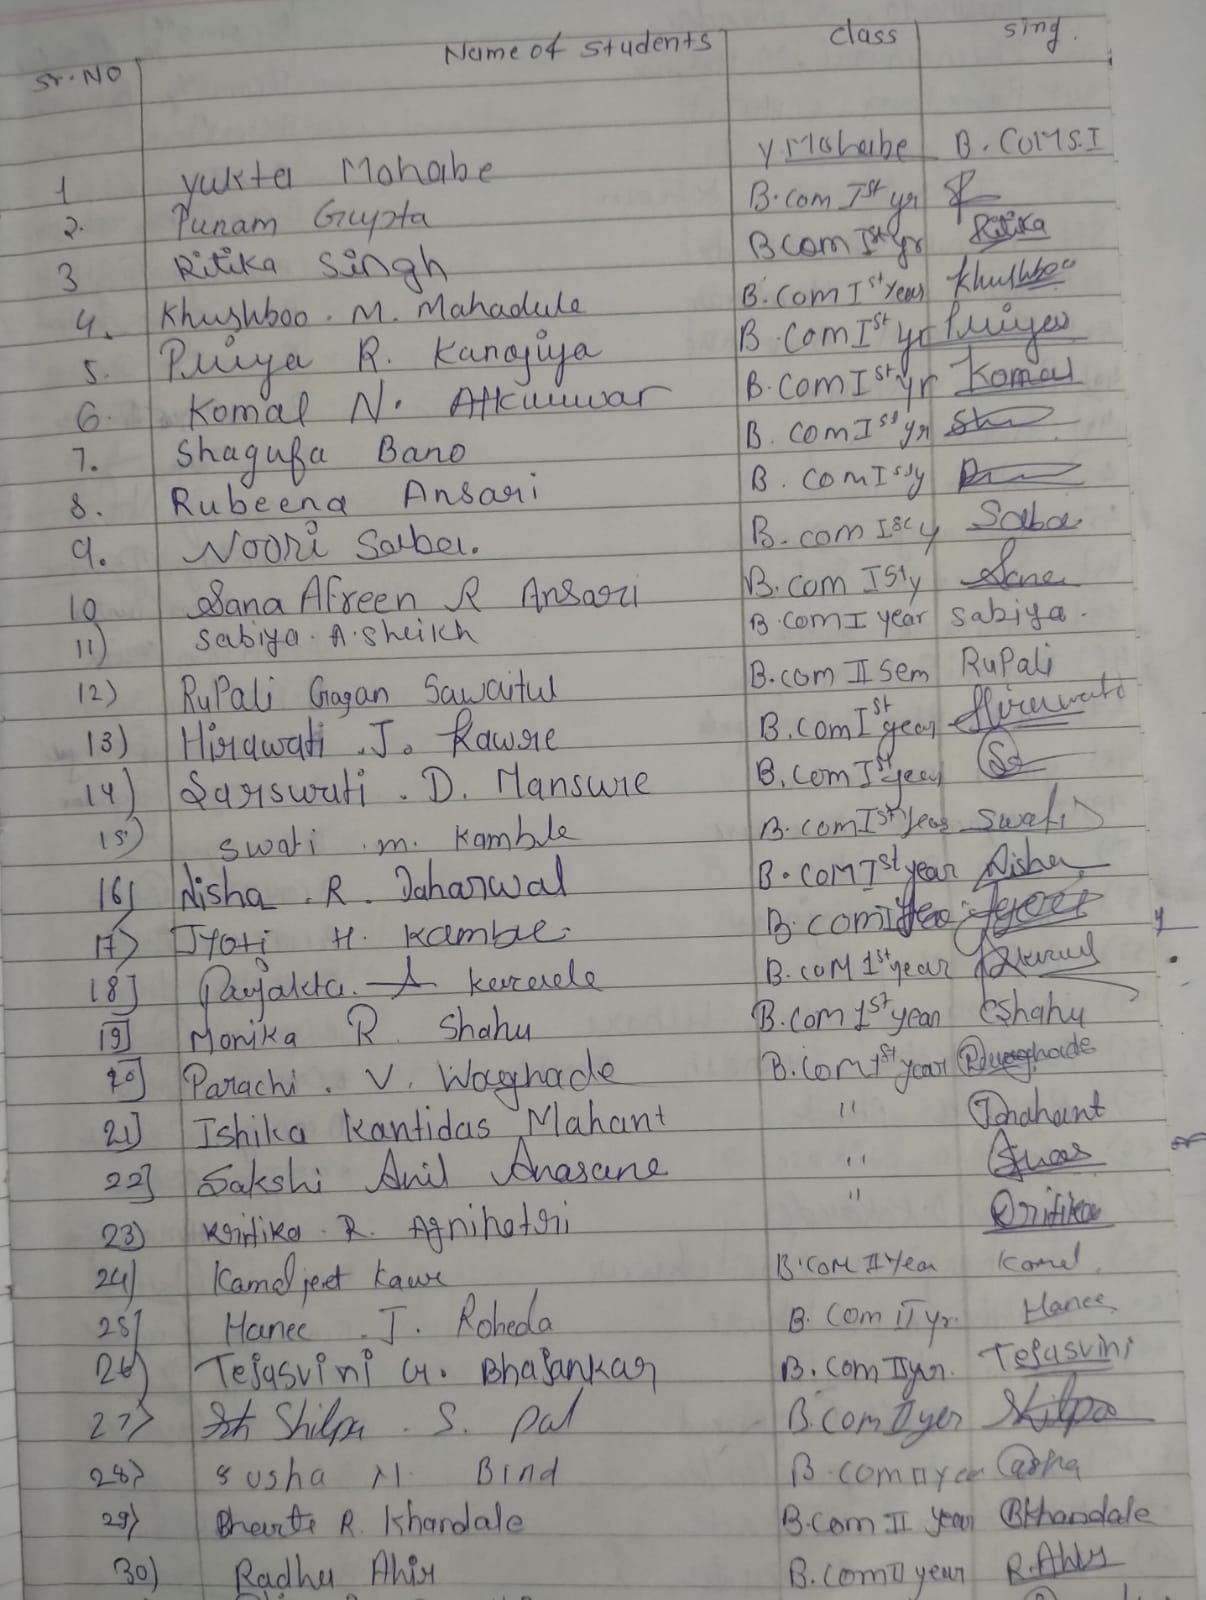 Sr.No Name of Students Class Sing.
1 Yukta Mohabe Y Mohabe B.COM S.I
2. Punam Gupta B.com Ist yr
3 Ritika Singh B com Ist yr Ritika
4. Khushboo. M. Mahadule B.Com Ist Year Khushboo
5. Priya R. Kanojiya B.Com Ist yr Priya
6. Komal N. Atkuwar B.Com Ist yr Komal
7. Shagufa Bano B. Com Ist yr
8. Rubeena Ansari B. Com Ist y
9. Noori Saba. B. com Ist y Saba
10 Sana Afreen R Ansari B. com ISty Sana
11) Sabiya. A. Sheikh B.com I year Sabiya.
12) RuPali Gagan Sawaitul B.com II Sem RuPali
13) Hirawati .J. Kawre B.com Ist year Hirawati
14) Sarswati. D. Mansure B.com Ist year
15) Swati .m. Kamble B.com Ist Year Swati
16) Nisha .R. Daharwal B.COM Ist year Nisha
17) Jyoti H. Kamble. B. com Jyoti
18] A B.COM 1st year
19] Monika R. Shahu B.com 1st year Shahu
20] Parachi. V. Waghade B.Com 1st year
21] Ishika Kantidas Mahant " Mahant
22] Sakshi Anil Anasane "
23) Kritika. R. Agnihotri " Kritika
24) Kamaljeet Kaur B.COM II Year Kamal
25] Hanee .J. Roheda B. Com II yr. Hanee
26) Tejasvini G. Bhajankar B. Com II yr. Tejasvini
27) Shilpa .S. Pal B.com II yer Shilpa
28) usha M. Bind B.com II year
29) Bharti R. Khandale B.com II year BKhandale
30) Radha Ahir B.com II year R.Ahir